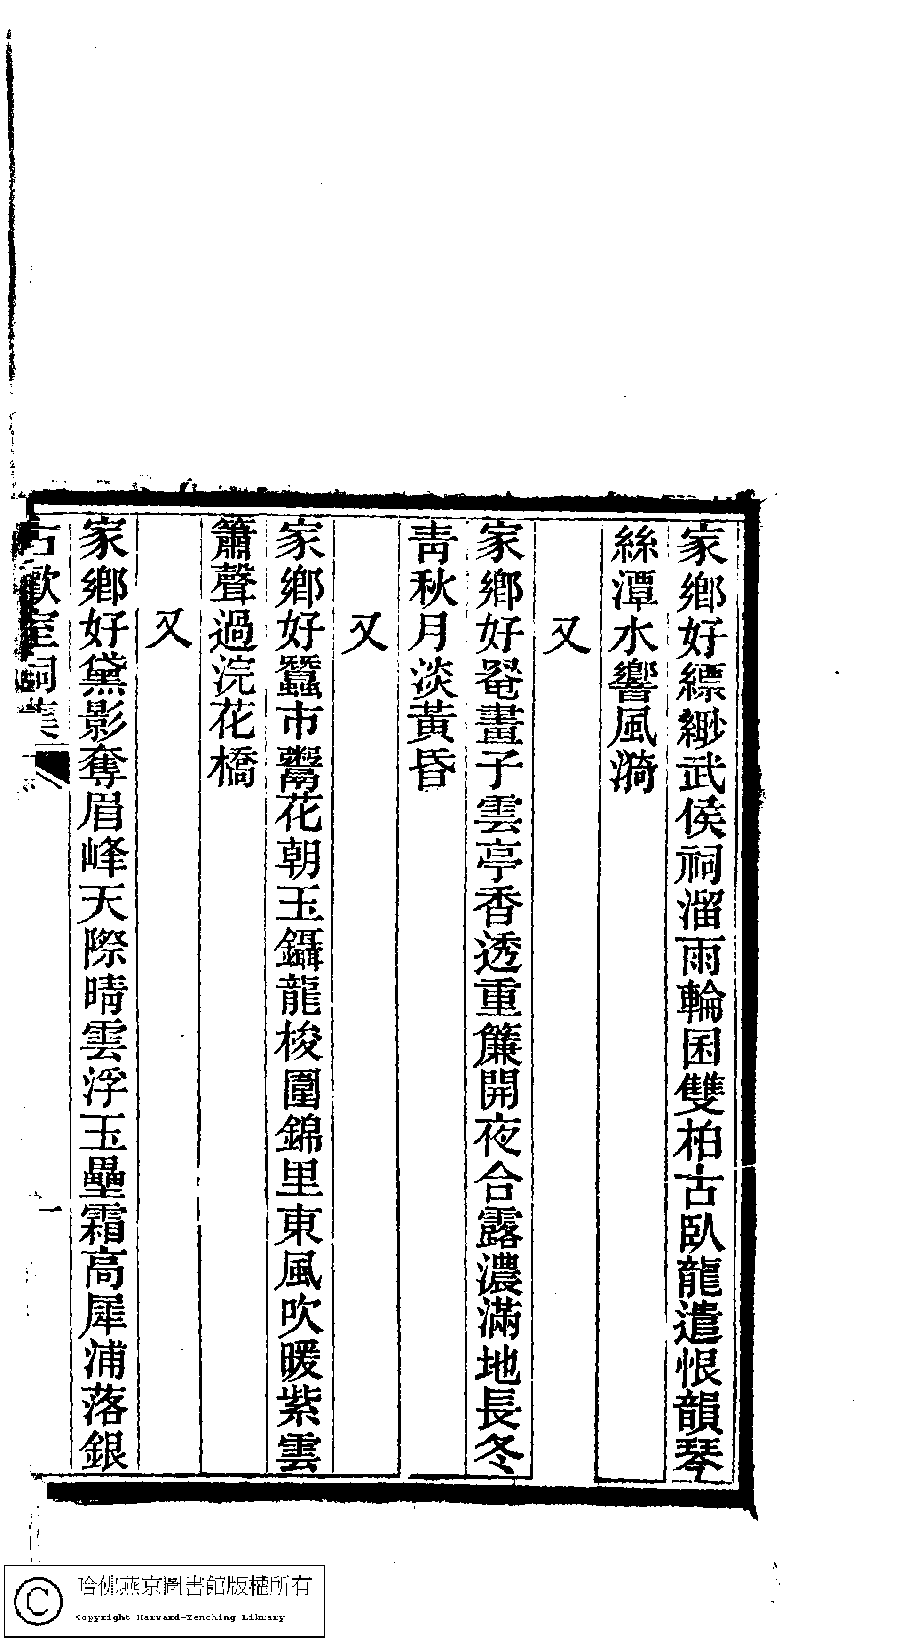 家鄉好縹緲武侯祠溜雨輪囷雙柏古臥龍遺恨韻琴
絲潭水響風漪
又
家鄉好罨畫子雲亭香透重簾開夜合露濃滿地長冬
靑秋月淡黃昏
又
家鄉好蠶市鬻花朝玉鑷龍梭圍錦里東風吹暖紫雲
簫聲過浣花橋
又
家鄉好黛影奪眉峰天際晴雲浮玉壘霜高犀浦落銀
古歡室詞集
一
哈佛燕京圖書館版權所有
Copyright Harvard-Yenching Library